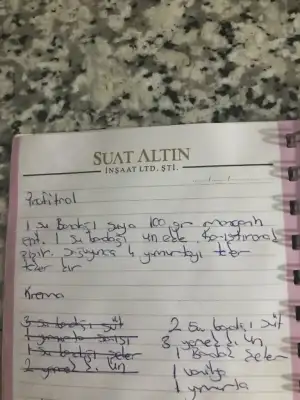 SUAT ALTIN
İNŞAAT LTD. ŞTİ.
Profitrol
1 su Bardağı suya 100 gr margarin
erit. 1 su bardağı un ekle. Karıştırarak
pişir. Soğuyunca 4 yumurtayı teker
teker kır
Krema
3 su bardağı süt
1 yumurta sarısı
1 su bardağı şeker
2 yemek k. un
2 su bardağı süt
3 yemek k. un
1 Bardak şeker
1 vanilya
1 yumurta